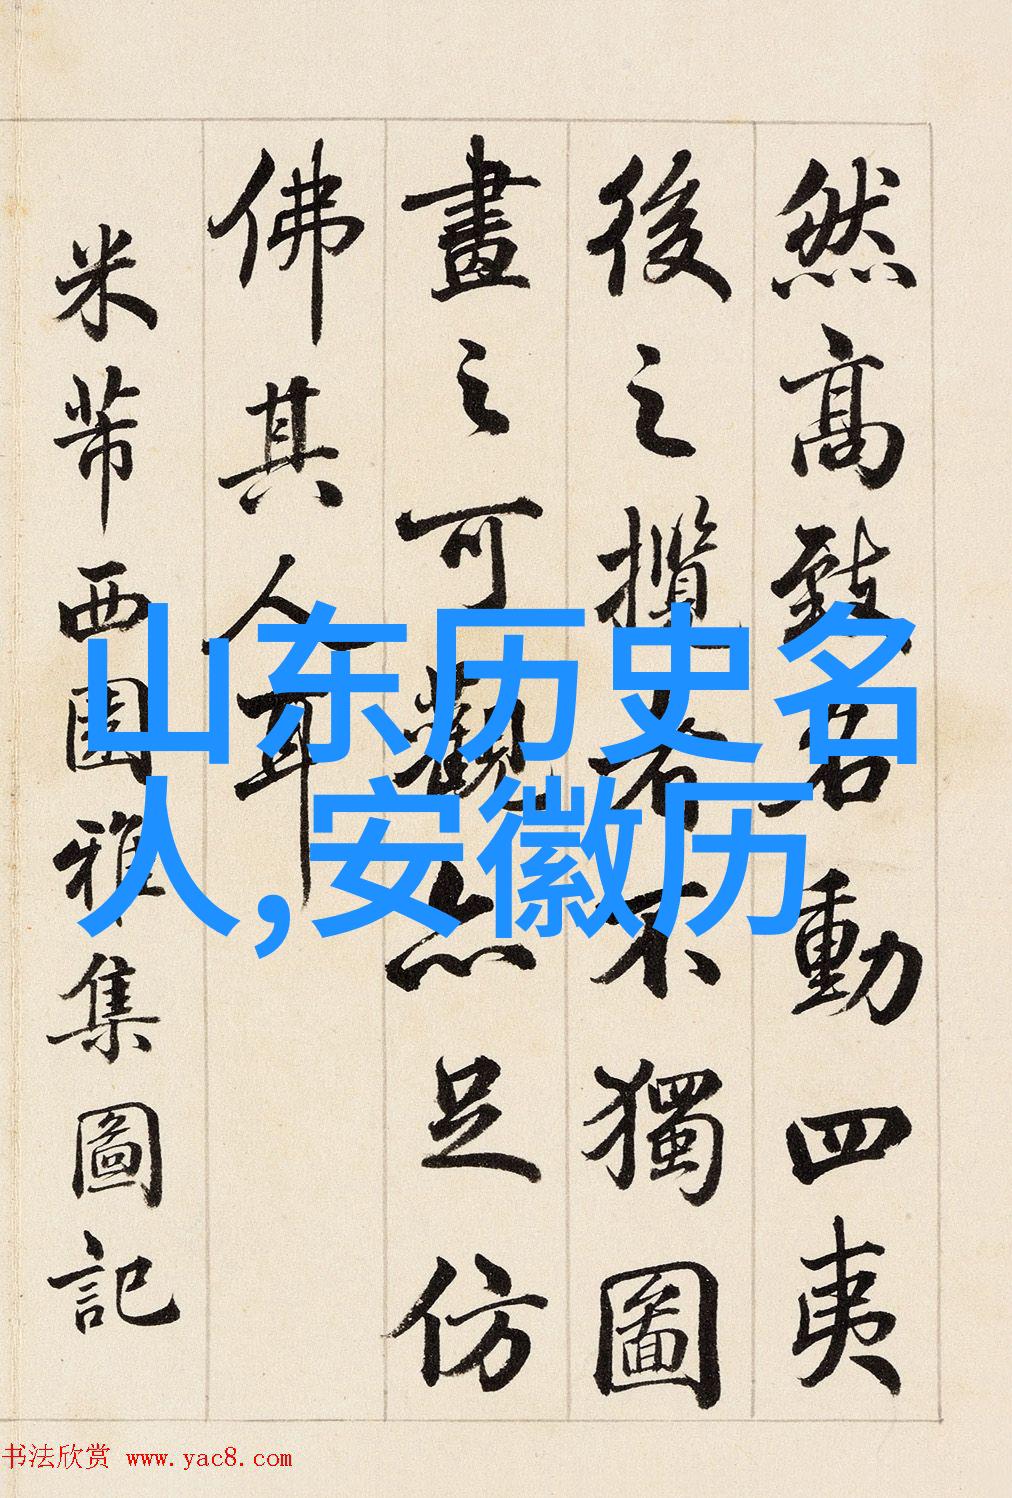 然高致名動四夷
後之攬者不獨圖
畫之可觀亦足仿
佛其人耳
米芾西園雅集圖記
山东历史名
人,安徽历
书法欣赏 www.yac8.com